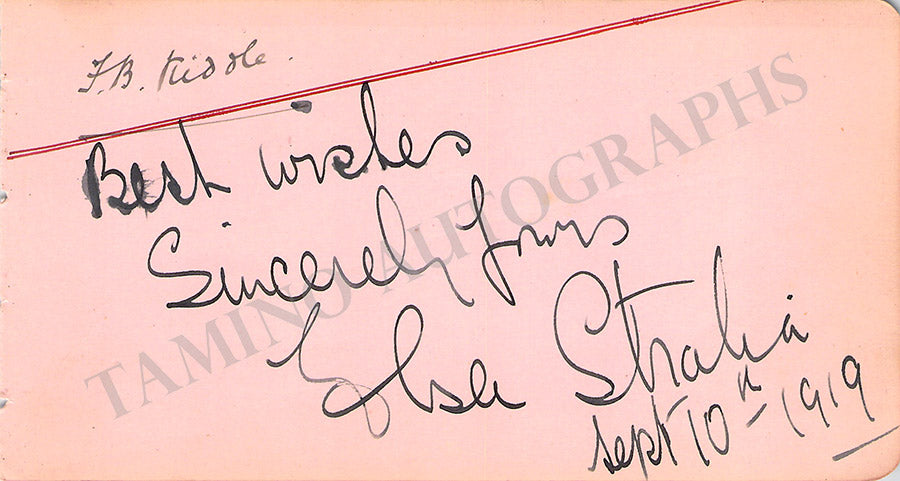 F.B. Riddle.
Best wishes
Sincerely Yours
Elsa Stralia
Sept 10th - 1919
TAMINO AUTOGRAPHS